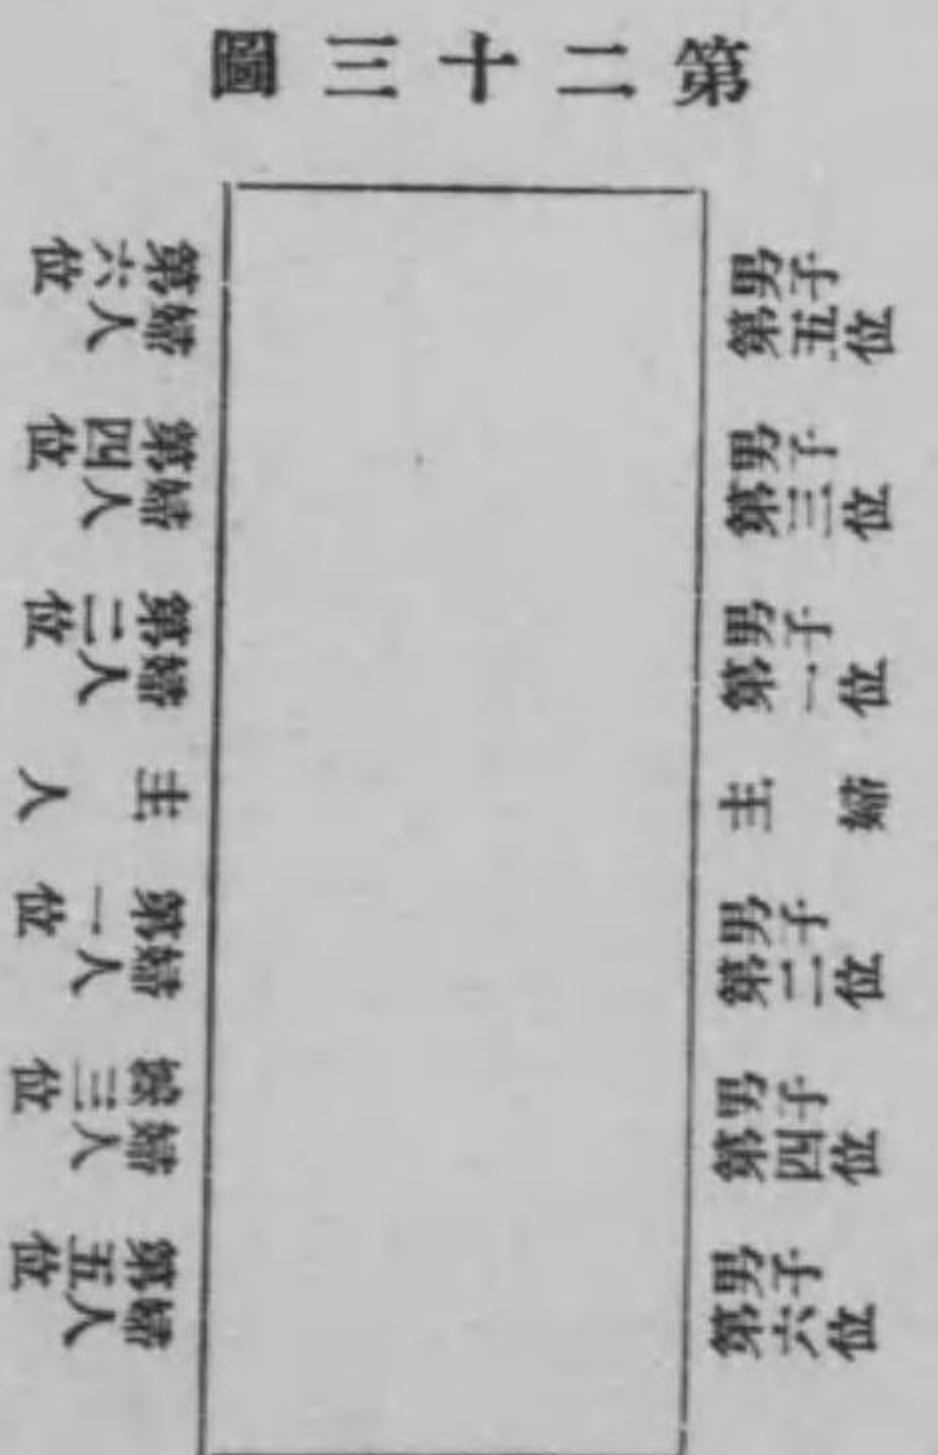 第二十三圖
男子
第五位
男子
第三位
男子
第一位
主婦
男子
第二位
男子
第四位
男子
第六位
婦人
第六位
婦人
第四位
婦人
第二位
主人
婦人
第一位
婦人
第三位
婦人
第五位